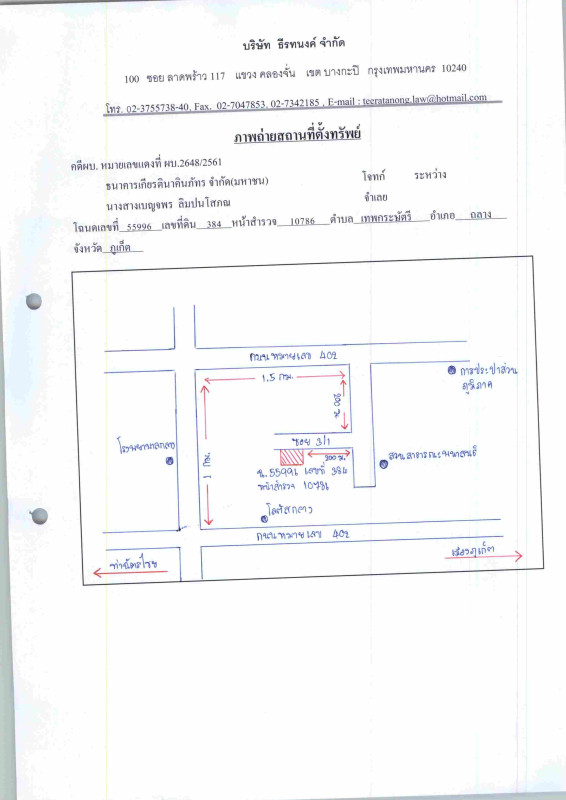 บริษัท ธีรทนงค์ จำกัด
100 ซอย ลาดพร้าว 117 แขวง คลองจั่น เขต บางกะปิ กรุงเทพมหานคร 10240
โทร. 02-3755738-40, Fax. 02-7047853, 02-7342185 , E-mail : teeratanong.law@hotmail.com
ภาพถ่ายสถานที่ตั้งทรัพย์
คดีผบ. หมายเลขแดงที่ ผบ.2648/2561
ธนาคารเกียรตินาคินภัทร จำกัด(มหาชน) โจทก์ ระหว่าง
นางสางเบญจพร ลิมปนโสภณ จำเลย
โฉนดเลขที่ 55996 เลขที่ดิน 384 หน้าสำรวจ 10786 ตำบล เทพกระษัตรี อำเภอ ถลาง
จังหวัด ภูเก็ต
ถนนหมายเลข 402
1.5 กม.
การประปาส่วน
ภูมิภาค
300 ม.
โรงพยาบาลถลาง
1 กม.
ซอย 3/1
300 ม.
ฉ. 55996 เลขที่ 384
หน้าสำรวจ 10786
โลตัสถลาง
ถนนหมายเลข 402
ท่าฉัตรไชย
เมืองภูเก็ต